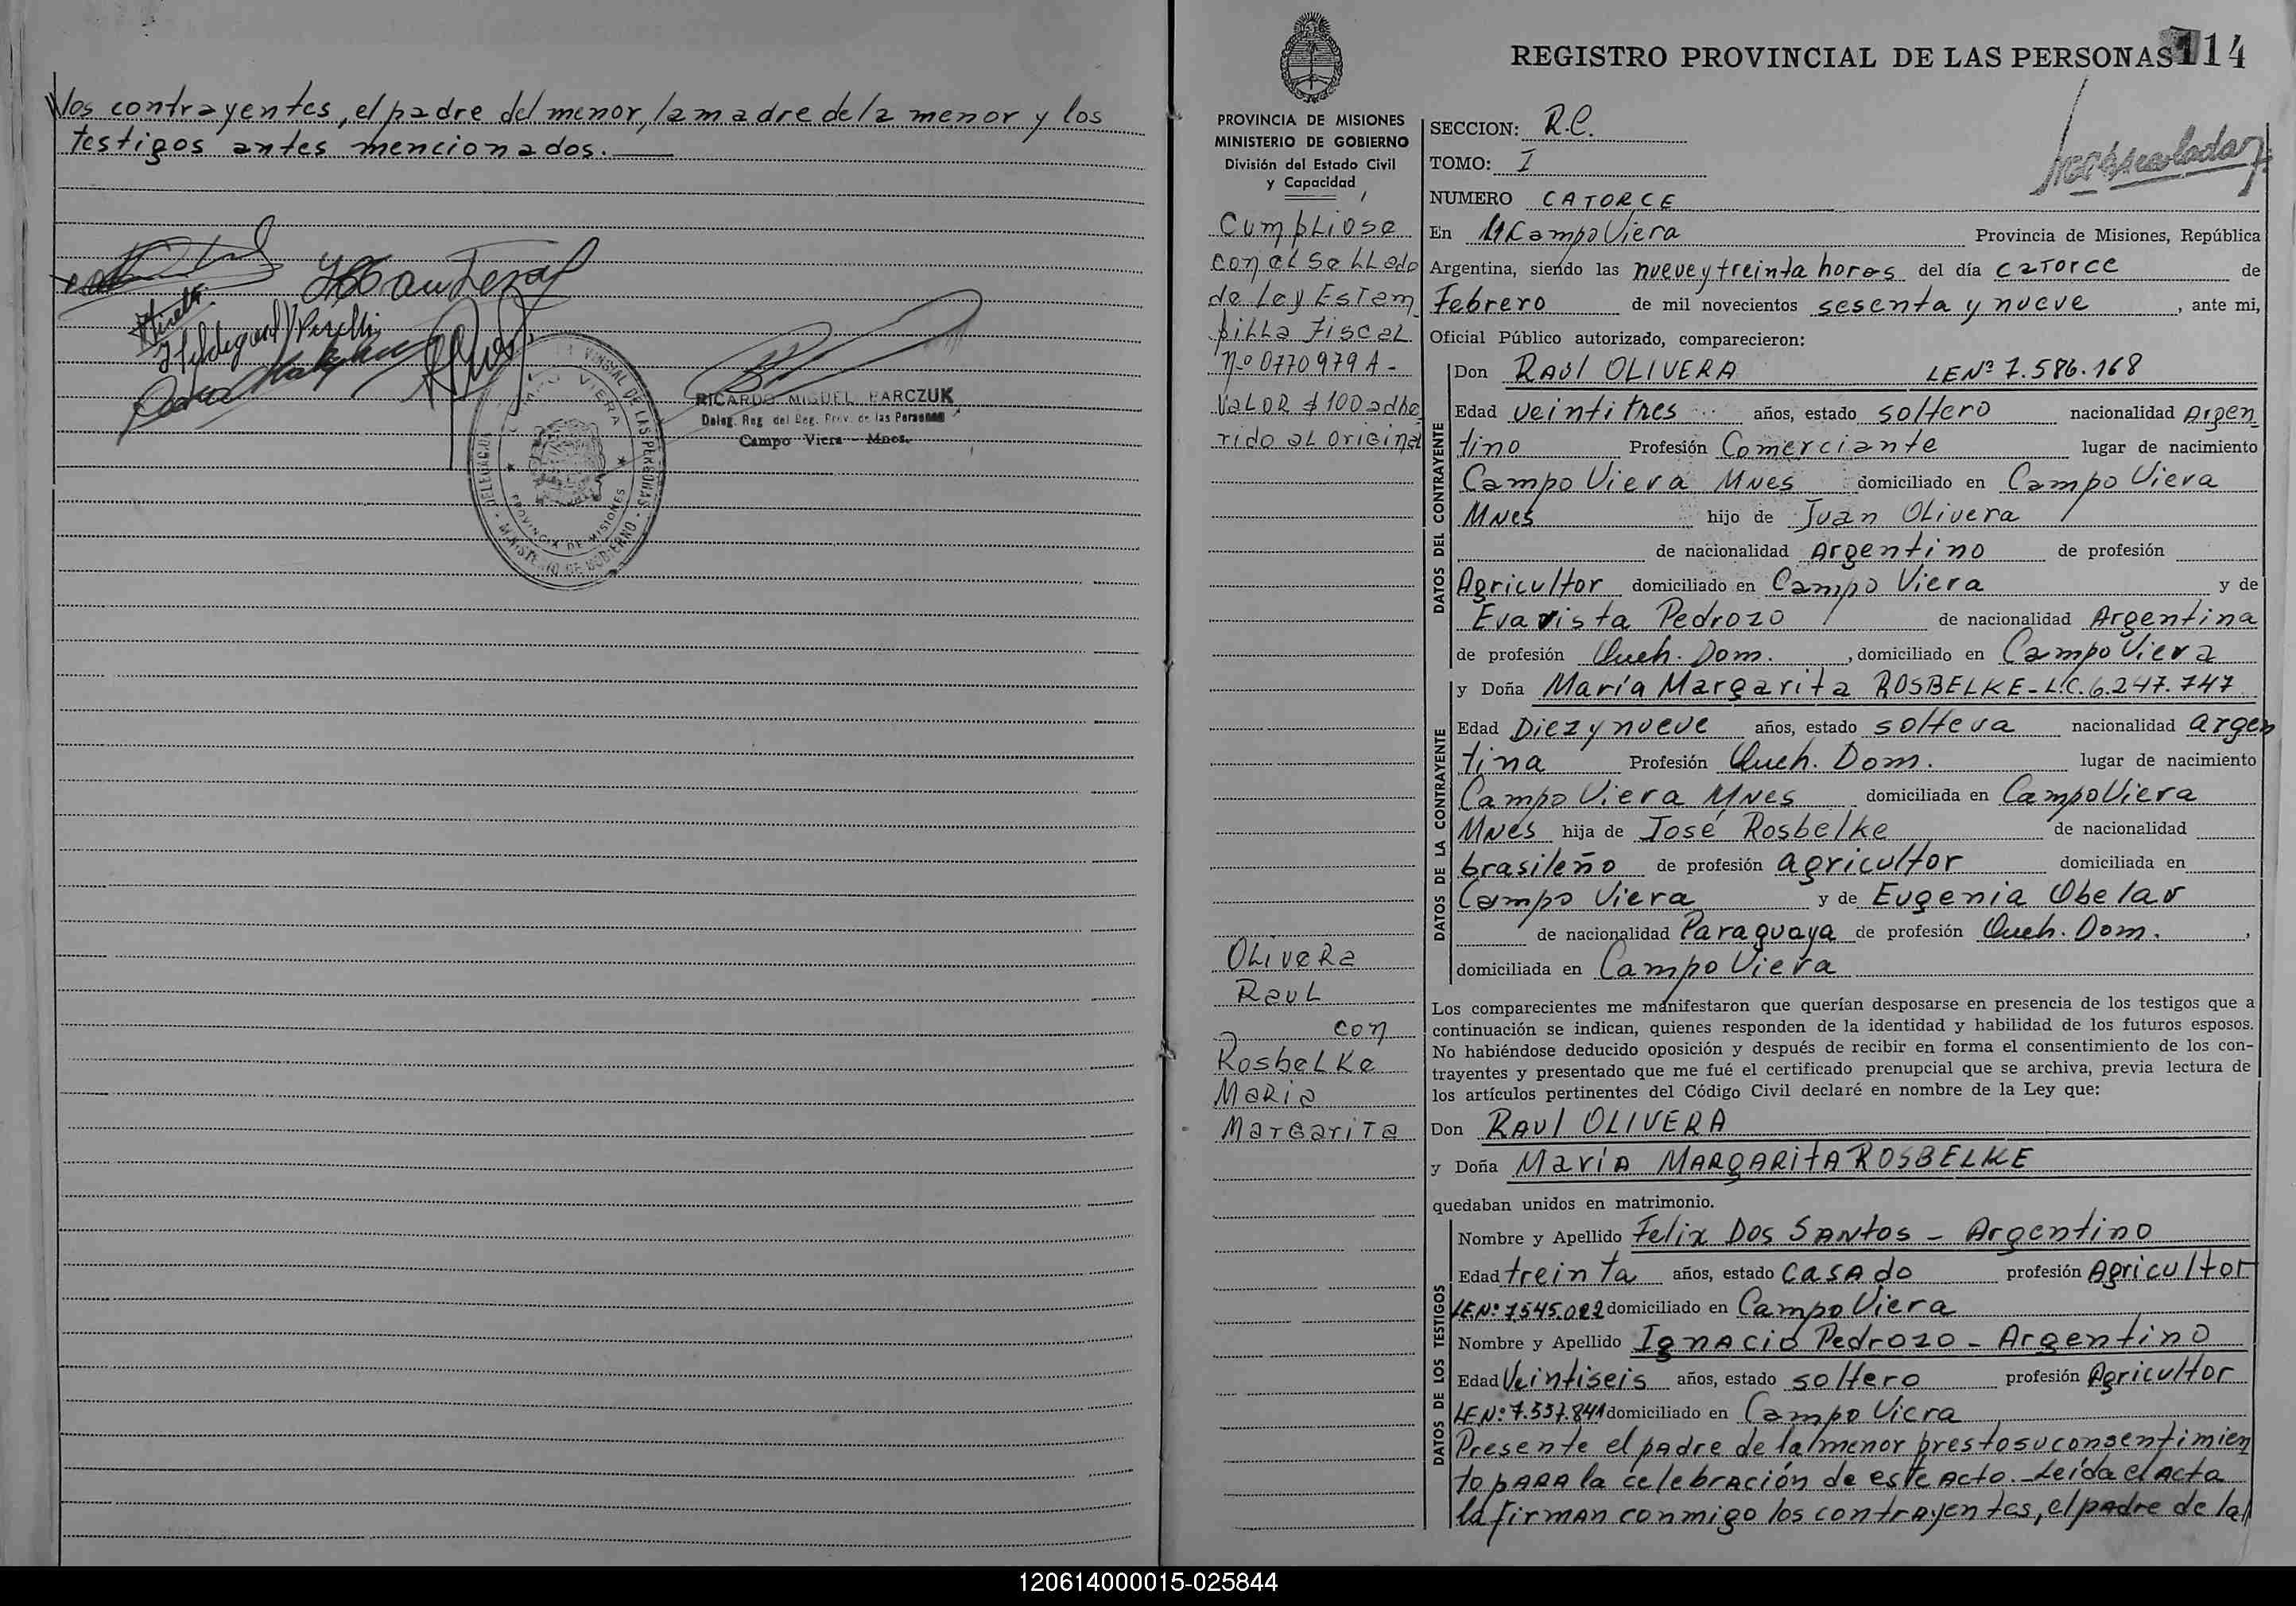 los contrayentes, el padre del menor, la madre de la menor y los
testigos antes mencionados.
Hildegard Pirelli
RICARDO MIGUEL PARCZUK
Deleg. Reg. del Reg. Prov. de las Personas
Campo Viera - Mnes.
PROVINCIAL DE LAS PERSONAS
CAMPO VIERA
PROVINCIA DE MISIONES
MINISTERIO DE GOBIERNO
REGISTRO PROVINCIAL DE LAS PERSONAS 114
PROVINCIA DE MISIONES
MINISTERIO DE GOBIERNO
División del Estado Civil
y Capacidad
Cumpliose
con el sellado
de Ley Estam
pilla Fiscal
nº 0770979 A -
Valor $ 100 adhe
rido al original
OLIVERA
RAUL
con
Rosbelke
Maria
Margarita
SECCION: R.C.
TOMO: I
NUMERO CATORCE
En Campo Viera Provincia de Misiones, República
Argentina, siendo las nueve y treinta horas del día catorce de
Febrero de mil novecientos sesenta y nueve, ante mi,
Oficial Público autorizado, comparecieron:
DATOS DEL CONTRAYENTE
Don RAUL OLIVERA LE Nº 7.586.168
Edad veintitres años, estado soltero nacionalidad Argen
tino Profesión Comerciante lugar de nacimiento
Campo Viera Mnes domiciliado en Campo Viera
Mnes hijo de Juan Olivera
de nacionalidad Argentino de profesión
Agricultor domiciliado en Campo Viera y de
Evarista Pedrozo de nacionalidad Argentina
de profesión Queh. Dom., domiciliado en Campo Viera
DATOS DE LA CONTRAYENTE
y Doña María Margarita ROSBELKE - L.C. 6.247.747
Edad Diez y nueve años, estado soltera nacionalidad argen
tina Profesión Queh. Dom. lugar de nacimiento
Campo Viera Mnes domiciliada en Campo Viera
Mnes hija de José Rosbelke de nacionalidad
brasileño de profesión agricultor domiciliada en
Campo Viera y de Eugenia Obelar
de nacionalidad Paraguaya de profesión Queh. Dom.,
domiciliada en Campo Viera
Los comparecientes me manifestaron que querían desposarse en presencia de los testigos que a
continuación se indican, quienes responden de la identidad y habilidad de los futuros esposos.
No habiéndose deducido oposición y después de recibir en forma el consentimiento de los con-
trayentes y presentado que me fué el certificado prenupcial que se archiva, previa lectura de
los artículos pertinentes del Código Civil declaré en nombre de la Ley que:
Don RAUL OLIVERA
y Doña María MARGARITA ROSBELKE
quedaban unidos en matrimonio.
DATOS DE LOS TESTIGOS
Nombre y Apellido Felix Dos Santos - Argentino
Edad treinta años, estado casado profesión Agricultor
LE Nº 7.545.022 domiciliado en Campo Viera
Nombre y Apellido Ignacio Pedrozo - Argentino
Edad Veintiseis años, estado soltero profesión Agricultor
LE Nº: 7.557.841 domiciliado en Campo Viera
Presente el padre de la menor presto su consentimien
to para la celebración de este acto. - Leída el acta
la firman conmigo los contrayentes, el padre de la
120614000015-025844